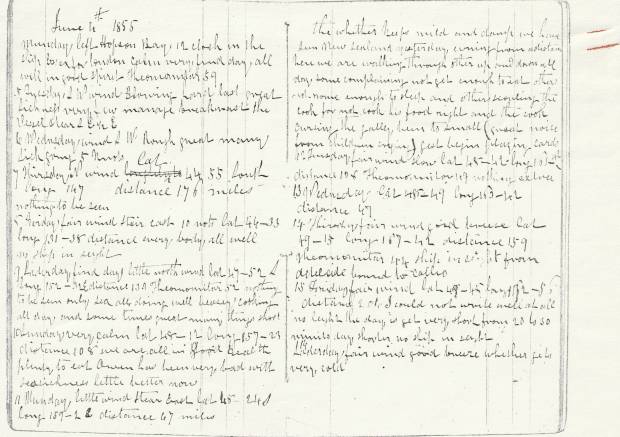 June 4th 1855
Munday, left Hopson Bay, 12 clock in the
ship for london calm very find day, all
well in good spirit Theomometor 59
5 Tuesday, S W wind Blowing hard last great
sickness very manage breakwast the
Vesel stear S E
6 Wednesday, wind S W Rough great many
sick going 5 Knots Lat
7 Thursday wind 44 55 South
long 147 distance 176 miles
nothing to be seen
8 Friday fair wind stear east 10 not Lat 44-33
long 151-38 distance every body, all well
no ship in seight
9 Saterday, find day little north wind Lat 47-52
long 152-32 distance 138 Theomometor 52 nothing
to be seen only sea all doing well
all day and some times great many things short
10 Sunday very calm Lat 48-12 long 157-23
distance 108 we are all in good health
plenty, to eat Owen has been very, bad with
seasickness little better now
11 Munday, little wind stear east Lat 48-24
long 159-22 distance 67 miles
the whether keeps mild and damp we have
seen New Sealand yesterday, coming from
here we are walking through other up and down all
day, some complening not get enough to eat other
not room enough to sleep and others scolding the
cook for not cook his food right and the cook
cursing the galley, been to small (great noise
from children crying) just begin playing cards
12 Tuesday fair wind slow Lat 48-42 long
distance 108 Theomometor 49 nothing
13 Wednesday Lat 48-49 long 163-42
distance 67
14 Thursday fair wind good breeze Lat
49-15 long 167-42 distance 159
Theomometor 44 ship in seight from
adelede bound to Callio
15 Friday fair wind Lat 48-45 long 172-56
distance 201 I could not write well at all
no light the day, is get very short from 20 to 30
minits day, shorter no ship in seight
16 Saterday, fair wind good breeze whether gets
very, cold